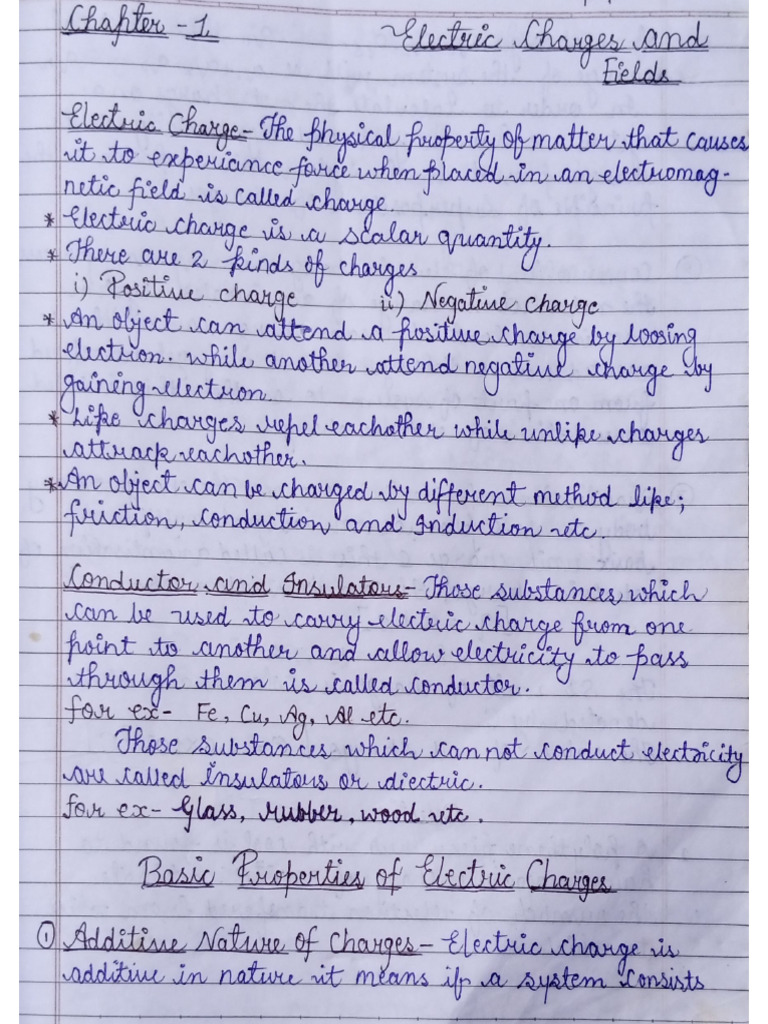 Chapter - 1
Electric Charges and
Fields
Electric Charge - The physical property of matter that causes
it to experiance force when placed in an electromag -
netic field is called charge
* Electric charge is a scalar quantity.
* There are 2 kinds of charges
i) Positive charge ii) Negative charge
* An object can attend a positive charge by loosing
electrion. while another attend negative charge by
gaining electron.
* Like charges repel eachother while unlike charges
attrack eachother.
* An object can be charged by different method like;
friction, conduction and Induction etc.
Conductor and Insulators - Those substances which
can be used to carry electric charge from one
point to another and allow electricity to pass
through them is called conductor.
for ex - Fe, Cu, Ag, Al etc.
Those substances which can not conduct electricity
are called insulators or diectric.
for ex - Glass, rubber, wood etc.
Basic Properties of Electric Charges
① Additive Nature of Charges - Electric charge is
additive in nature it means if a system consists